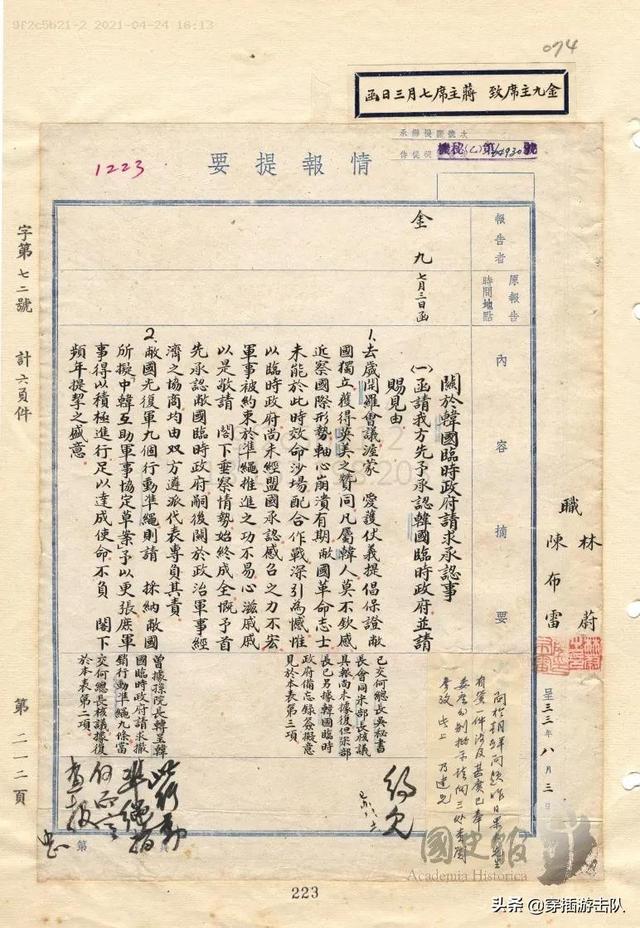 9f2c5b21-2 2021-04-24 16:13
074
金九主席致 蔣主席七月三日函
機秘(乙)第64930號
1223
情報提要
報告者
原報告時間地點
內容摘要
金九
七月三日函
關於韓國臨時政府請求承認事
(一)函請我方先予承認韓國臨時政府並請
賜見由
1.去歲開羅會議渥蒙 愛護仗義提倡保證敝
國獨立獲得英美之贊同凡屬韓人莫不欽感
近察國際形勢軸心崩潰有期敝國革命志士
未能於此時效命沙場配合作戰深引為憾惟
以臨時政府尚未經盟國承認感召之力不宏
軍事被約束於準繩推進之功不易心滋戚戚
以是敬請 閣下垂察情勢始終成全慨予首
先承認敝國臨時政府嗣後關於政治軍事經
濟之協商均由双方遴派代表專負其責
2.敝國光復軍九個行動準繩則請 採納敝國
所擬「中韓互助軍事協定草案」予以更張庶軍
事得以積極進行足以達成使命不負 閣下
頻年提挈之盛意
已交何總長吳秘書
長會同米部長核議
具報尚未據復但梁部
長已另據韓國臨時
政府備忘錄簽擬意
見於本表第三項
曾據孫院長轉呈韓
國臨時政府請求撤
銷行動準繩九條當
交何總長核議據復
於本表第二項
職 林蔚
陳布雷
呈 三三年八月三日
字第七二號 計六頁件
第二一二頁
223
國史館
Academia Historica
头条 @穿插游击队